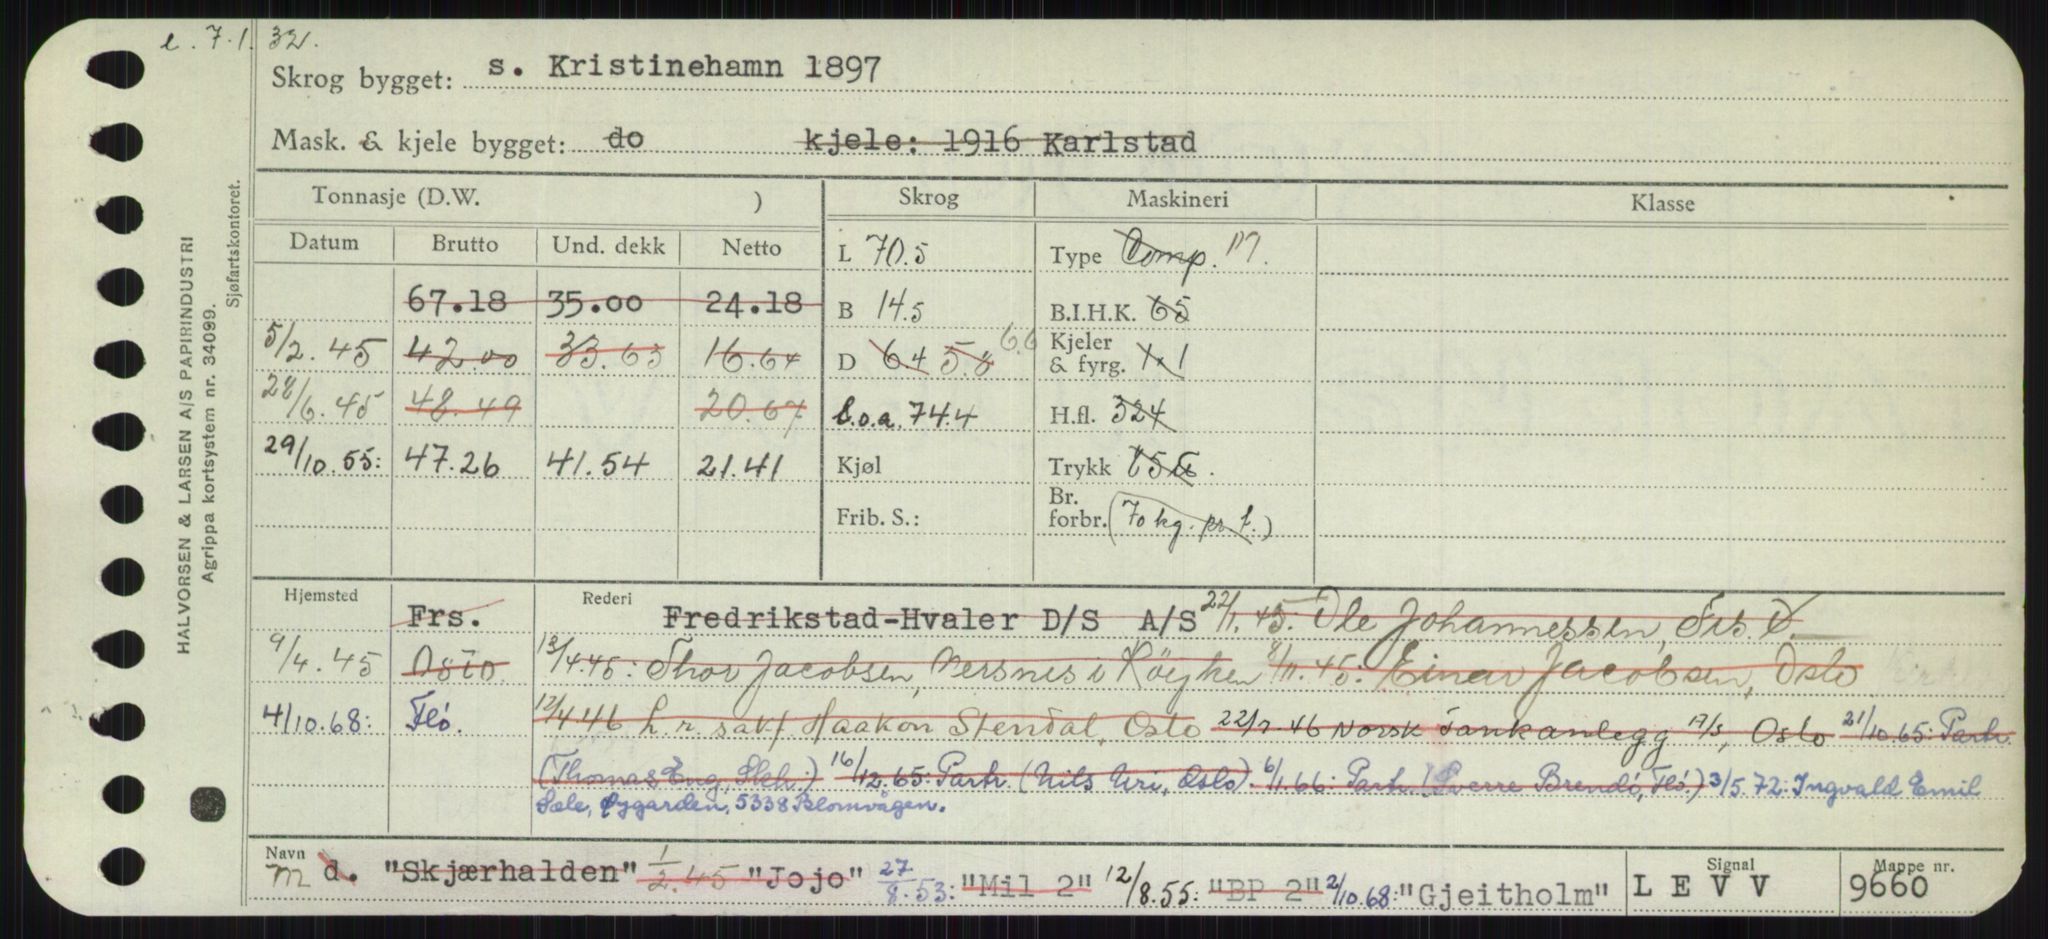 e. 7.1.32.
Skrog bygget: s. Kristinehamn 1897
Mask. & kjele bygget: do kjele: 1916 Karlstad
Tonnasje (D.W. ) Skrog Maskineri Klasse
Datum Brutto Und. dekk Netto
L 70.5 Type Comp. M.
67.18 35.00 24.18 B 14.5 B.I.H.K. 65
5/2.45 42.00 33.63 16.64 D 6.4 5.8 6.6 Kjeler & fyrg. 1.1
28/6.45 48.49 20.67 l.o.a. 74.4 H.fl. 324
29/10.55: 47.26 41.54 21.41 Kjøl Trykk
Frib. S.: Br. forbr. (70 kg. pr t.)
Hjemsted Frs. Rederi Fredrikstad-Hvaler D/S A/S 22/1.45: Ole Johannessen, Frs.
9/4.45 Oslo 13/4.45: Thor Jacobsen, Nersnes i Röyken 8/11.45: Einar Jacobsen, Oslo
4/10.68: Flö. 12/4.46 h.r. sakf Haakon Stendal, Oslo 22/7.46 Norsk Tankanlegg A/S, Oslo 21/10.65: Partr.
(Thomas Eng, Skh.) 16/12.65: Partr. (Nils Uri, Oslo). 6/1.66: Partr. (Sverre Brendö, Flö.) 3/5.72: Ingvald Emil
Sæle, Øygarden, 5338 Blomvågen.
Navn Signal Mappe nr.
m d. "Skjærhalden" 1/2.45 "Jojo" 27/8.53: "Mil 2" 12/8.55: "BP 2" 2/10.68: "Gjeitholm" L E V V 9660
HALVORSEN & LARSEN A/S PAPIRINDUSTRI
Agrippa kortsystem nr. 34099.
Sjøfartskontoret.